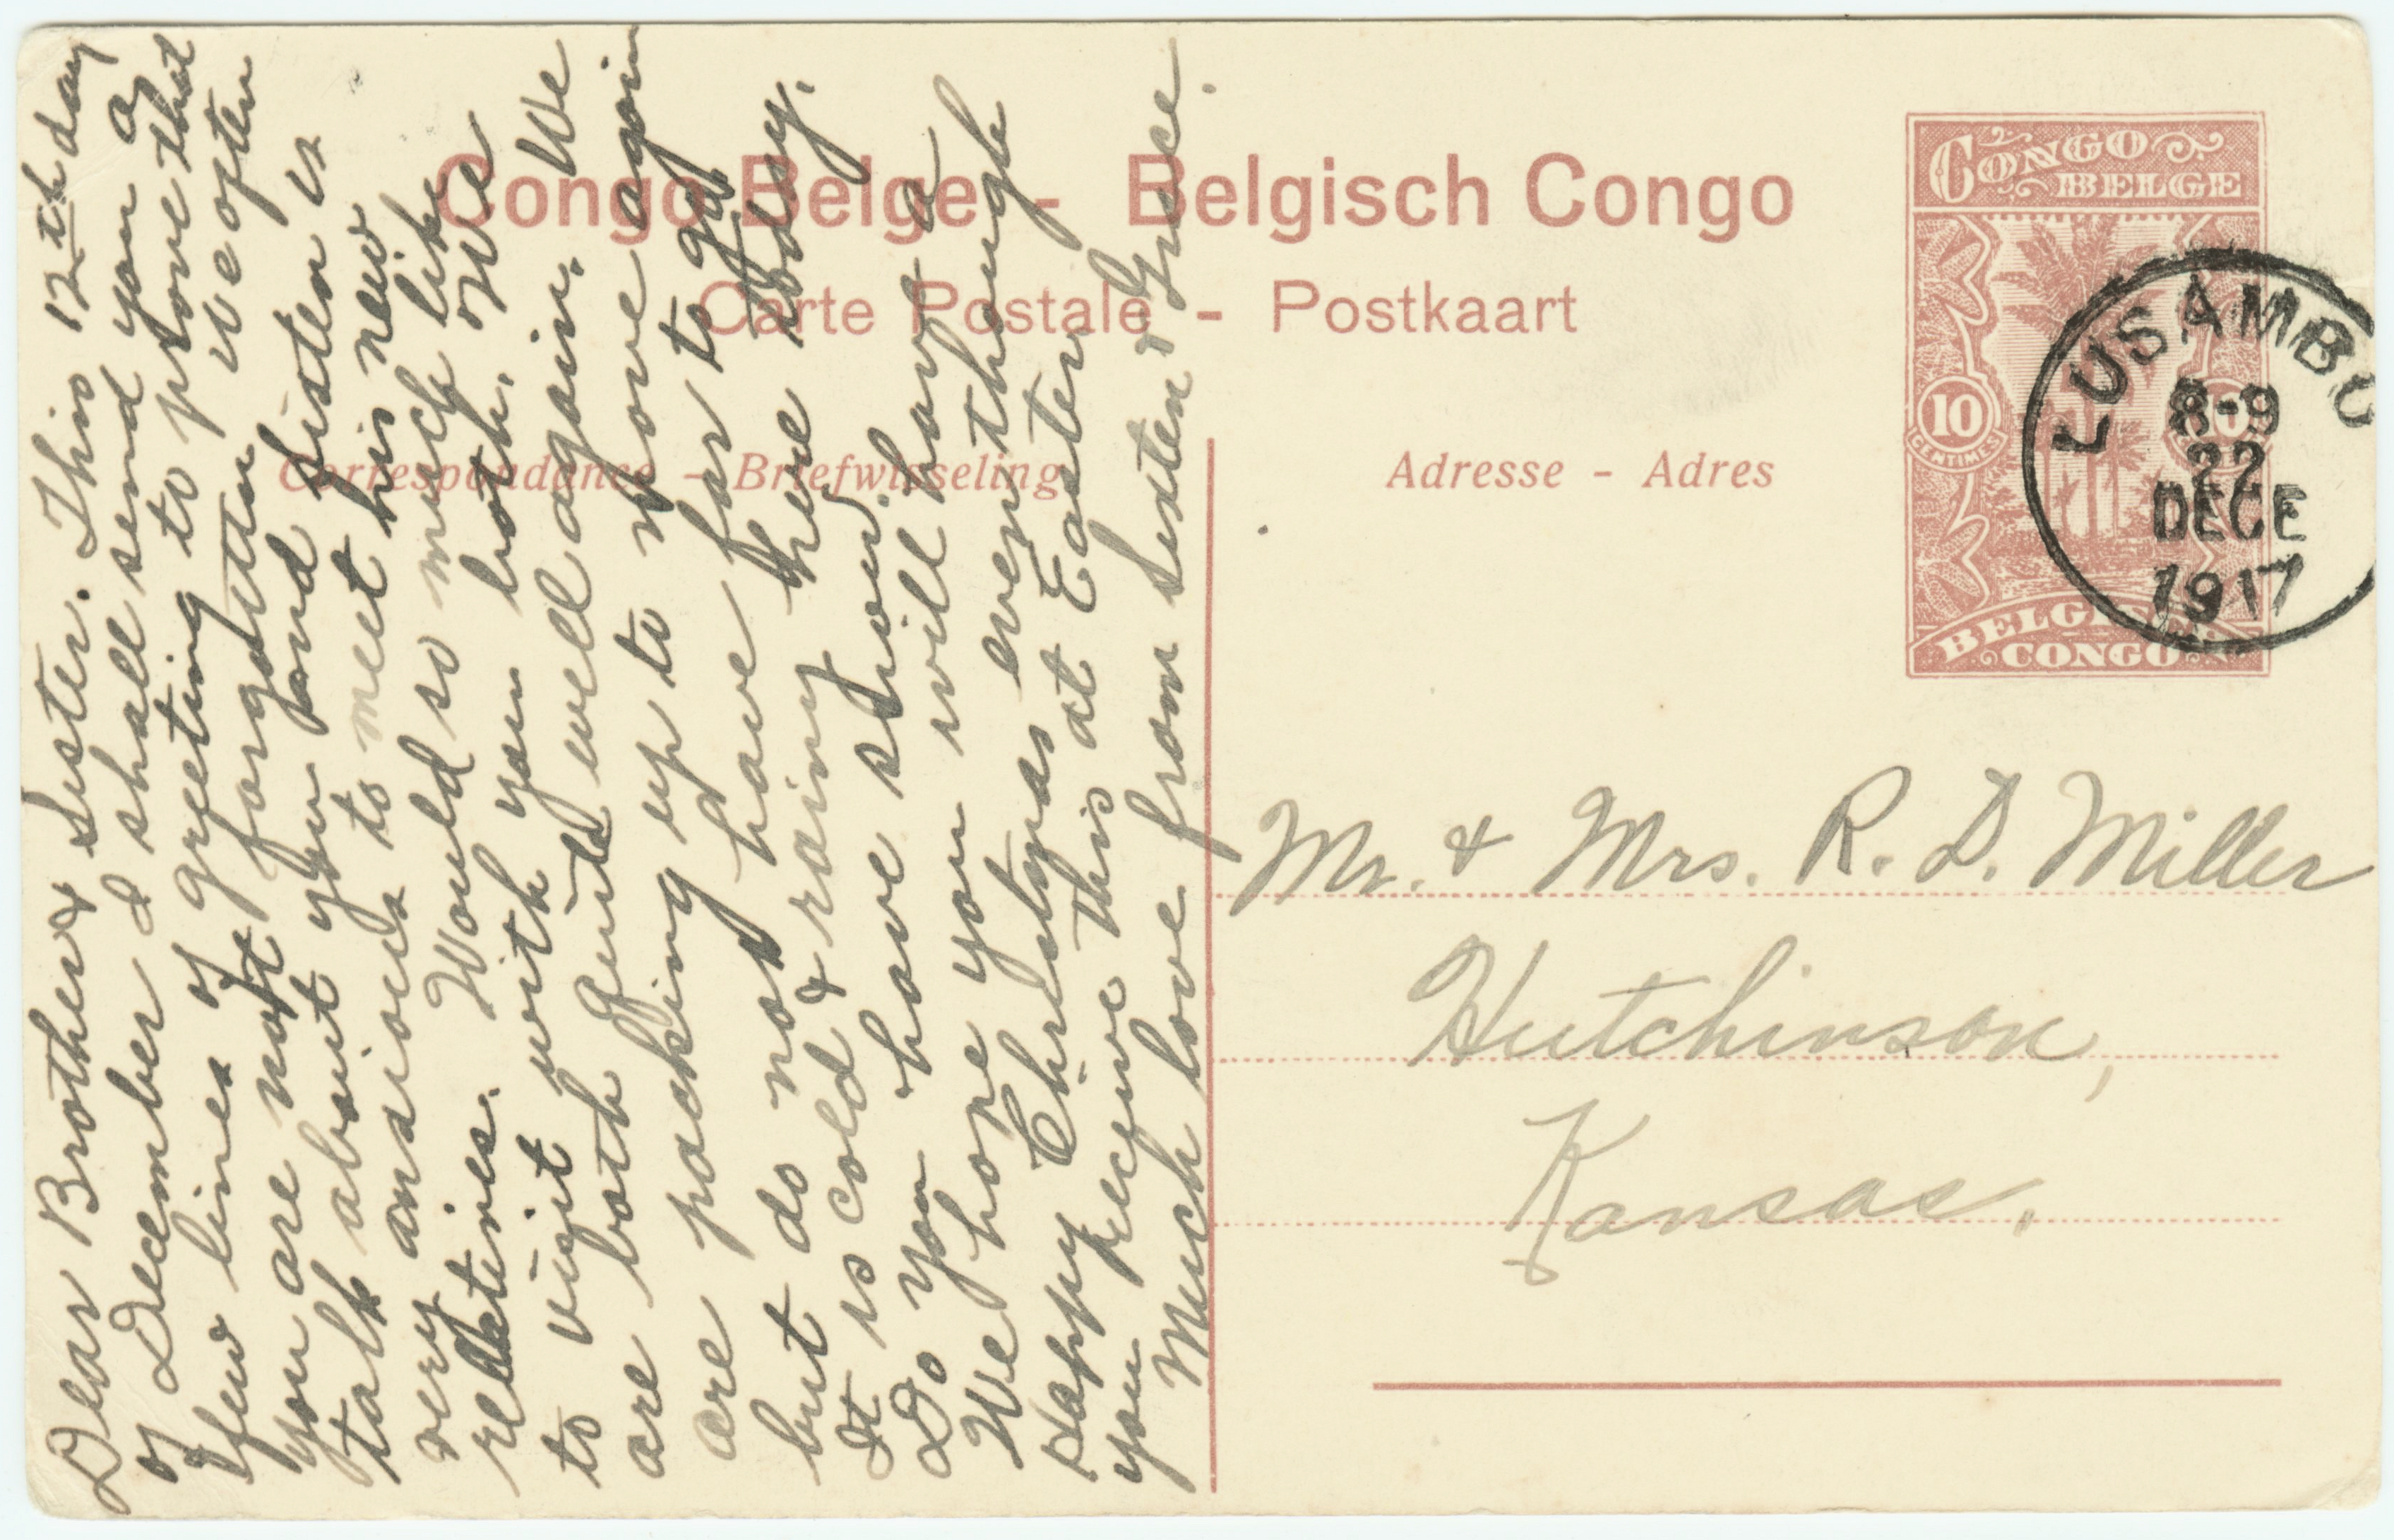 Congo Belge - Belgisch Congo
Carte Postale - Postkaart
Correspondance - Briefwisseling
Adresse - Adres
CONGO
BELGE
10
CENTIMES
10
BELGISCH
CONGO
LUSAMBO
8-9
22
DECE
1917
Dear Brother & Sister. This 12th day
of December I shall send you a
few lines of greeting to prove that
you are not forgotten we often
talk about you and Sister is
very anxious to meet his new
relatives. Would so much like
to visit with you both. We
are both quite well again. We
are packing up to move again
but do not have far to go.
It is cold & rainy here today.
Do you have snow.
We hope you will have a
Happy Christmas even though
you receive this at Easter
Much love from Sixten & Grace.
Mr. & Mrs. R. D. Miller
Hutchinson,
Kansas.